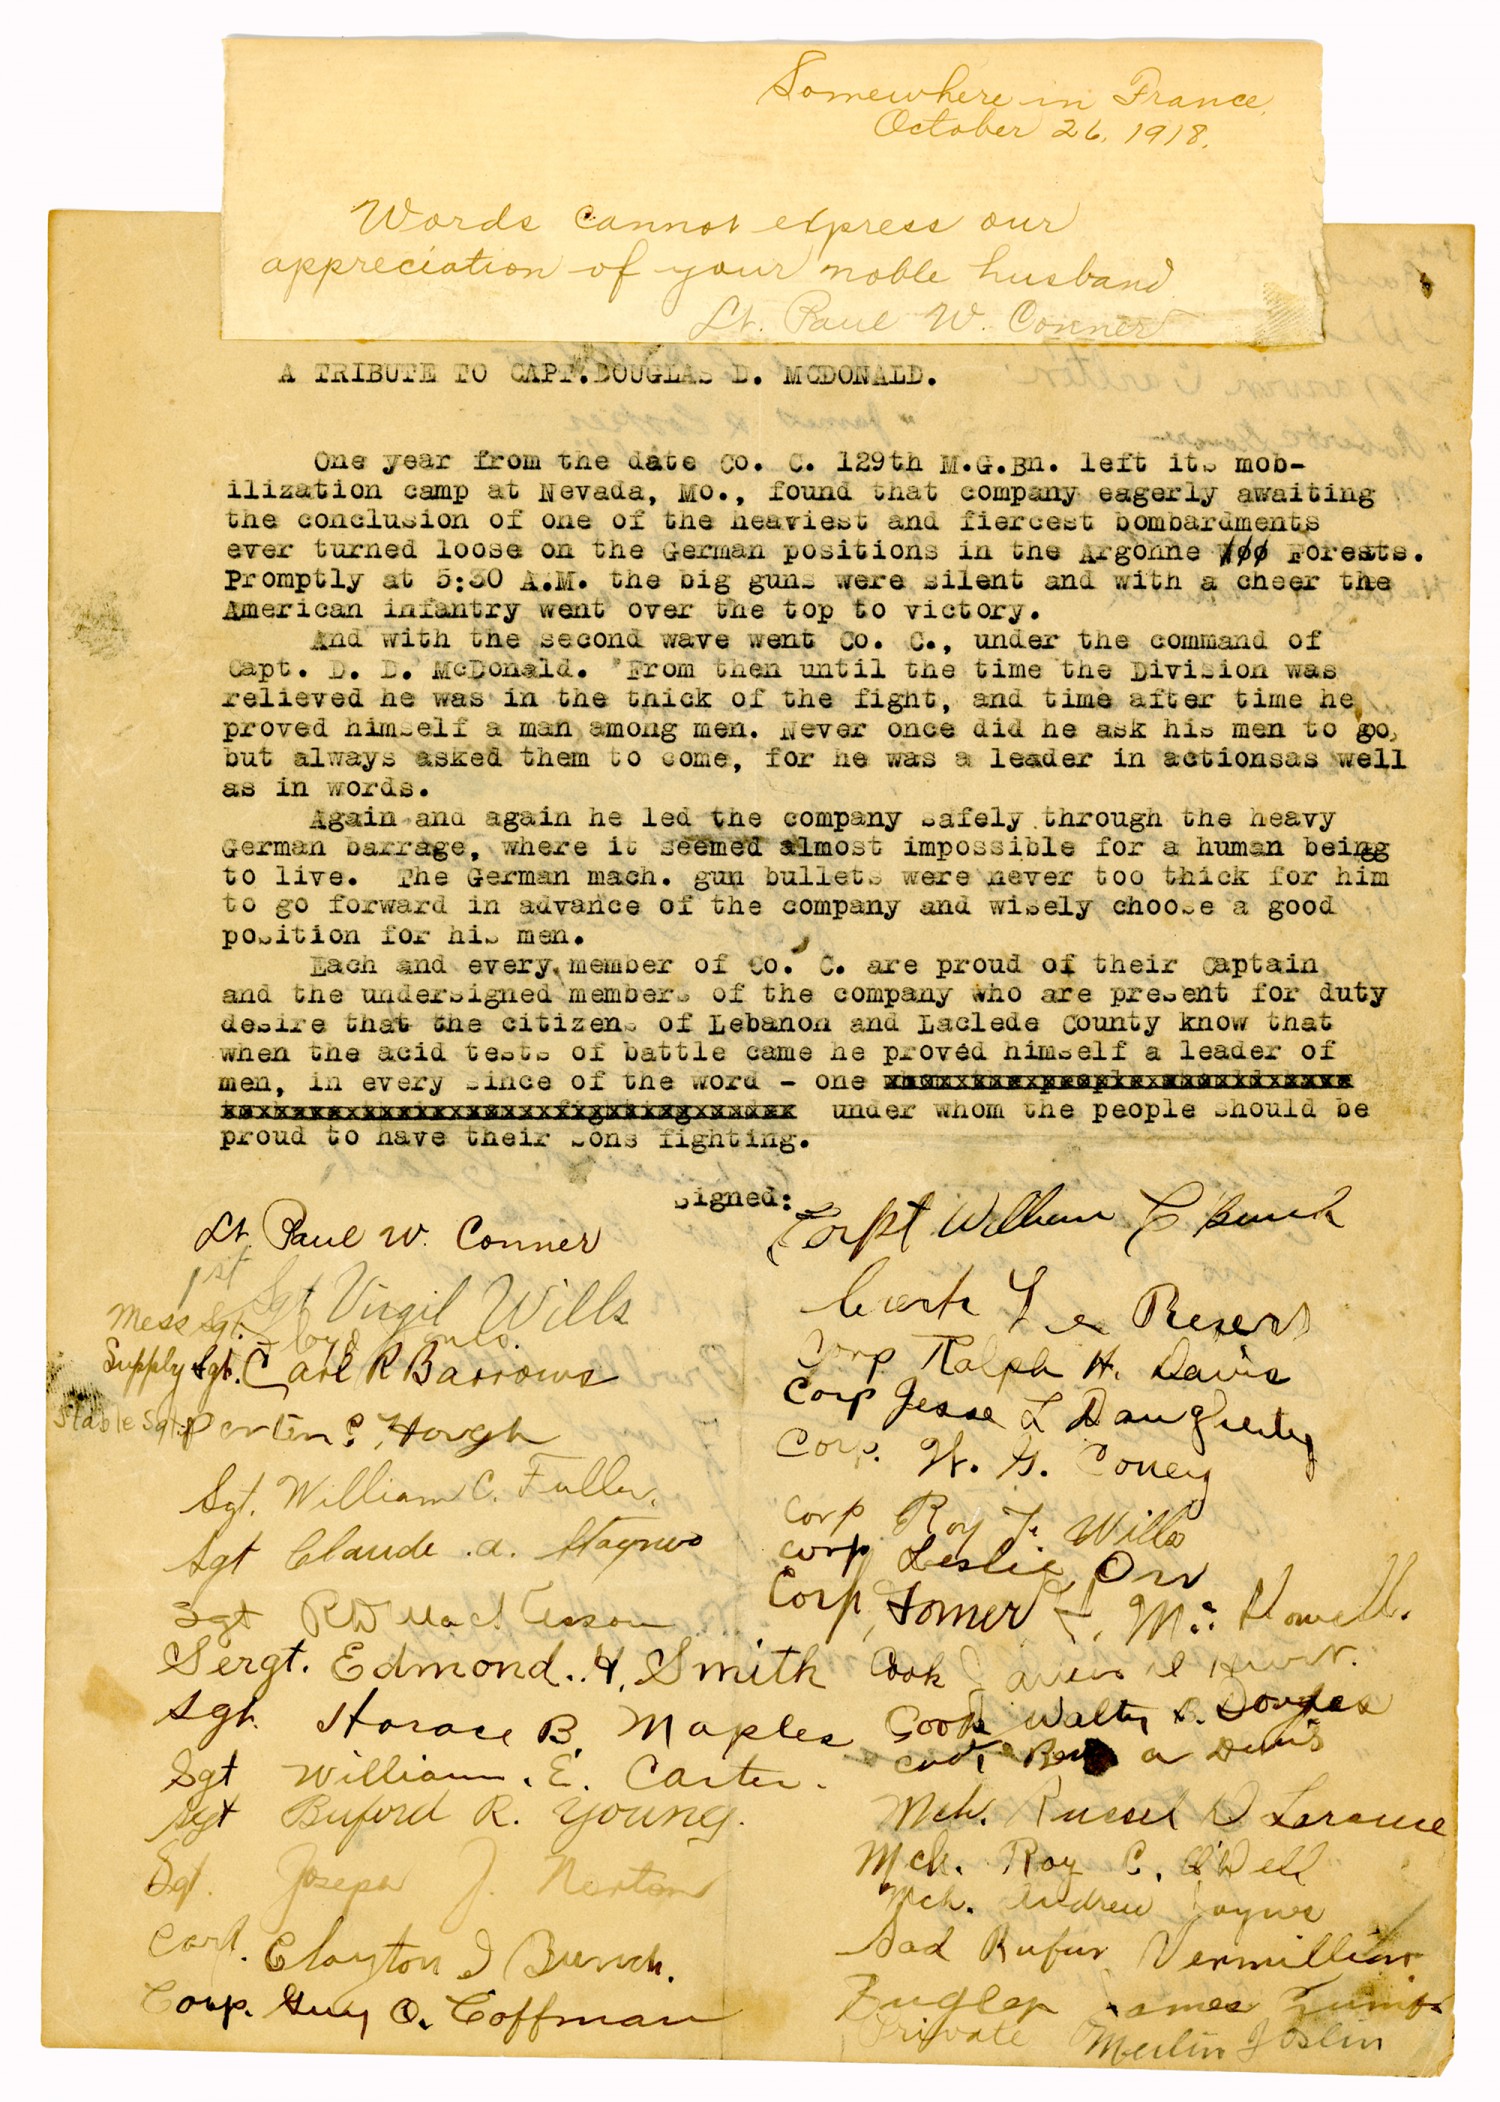 Somewhere in France,
October 26, 1918.
Words cannot express our
appreciation of your noble husband
Lt. Paul W. Conner
A TRIBUTE TO CAPT. DOUGLAS D. MCDONALD.
One year from the date Co. C. 129th M.G.Bn. left its mob-
ilization camp at Nevada, Mo., found that company eagerly awaiting
the conclusion of one of the heaviest and fiercest bombardments
ever turned loose on the German positions in the Argonne Forests.
Promptly at 5:30 A.M. the big guns were silent and with a cheer the
American infantry went over the top to victory.
And with the second wave went Co. C., under the command of
Capt. D. D. McDonald. From then until the time the Division was
relieved he was in the thick of the fight, and time after time he
proved himself a man among men. Never once did he ask his men to go,
but always asked them to come, for he was a leader in actionsas well
as in words.
Again and again he led the company safely through the heavy
German barrage, where it seemed almost impossible for a human being
to live. The German mach. gun bullets were never too thick for him
to go forward in advance of the company and wisely choose a good
position for his men.
Each and every member of Co. C. are proud of their Captain
and the undersigned members of the company who are present for duty
desire that the citizens of Lebanon and Laclede County know that
when the acid tests of battle came he proved himself a leader of
men, in every since of the word - one
under whom the people should be
proud to have their sons fighting.
Signed:
Lt. Paul W. Conner
1st Sgt Virgil Wills
Mess Sgt.
Supply Sgt. Carl R Barrows
Stable Sgt. Hough
Sgt. William C. Fuller.
Sgt Claude A. Haynes
Sgt
Sergt. Edmond. H. Smith
Sgt. Horace B. Maples
Sgt William. E. Carter.
Sgt Buford R. Young.
Sgt. Joseph J. Norton
Corp. Clayton Bunch.
Corp. Guy O. Coffman
William C
Lee
Corp Ralph H. Davis
Corp Jesse L Daugherty
Corp. W. G. Coney
Corp Roy F. Wills
Corp Leslie Orr
Corp Homer
Cook
Cook Walter Douglas
Cook Davis
Mch. Russel D
Mch. Roy C. O'Dell
Mch. Andrew Jaynes
Sad Rufus Vermillion
Bugler James
Private Merlin Joslin